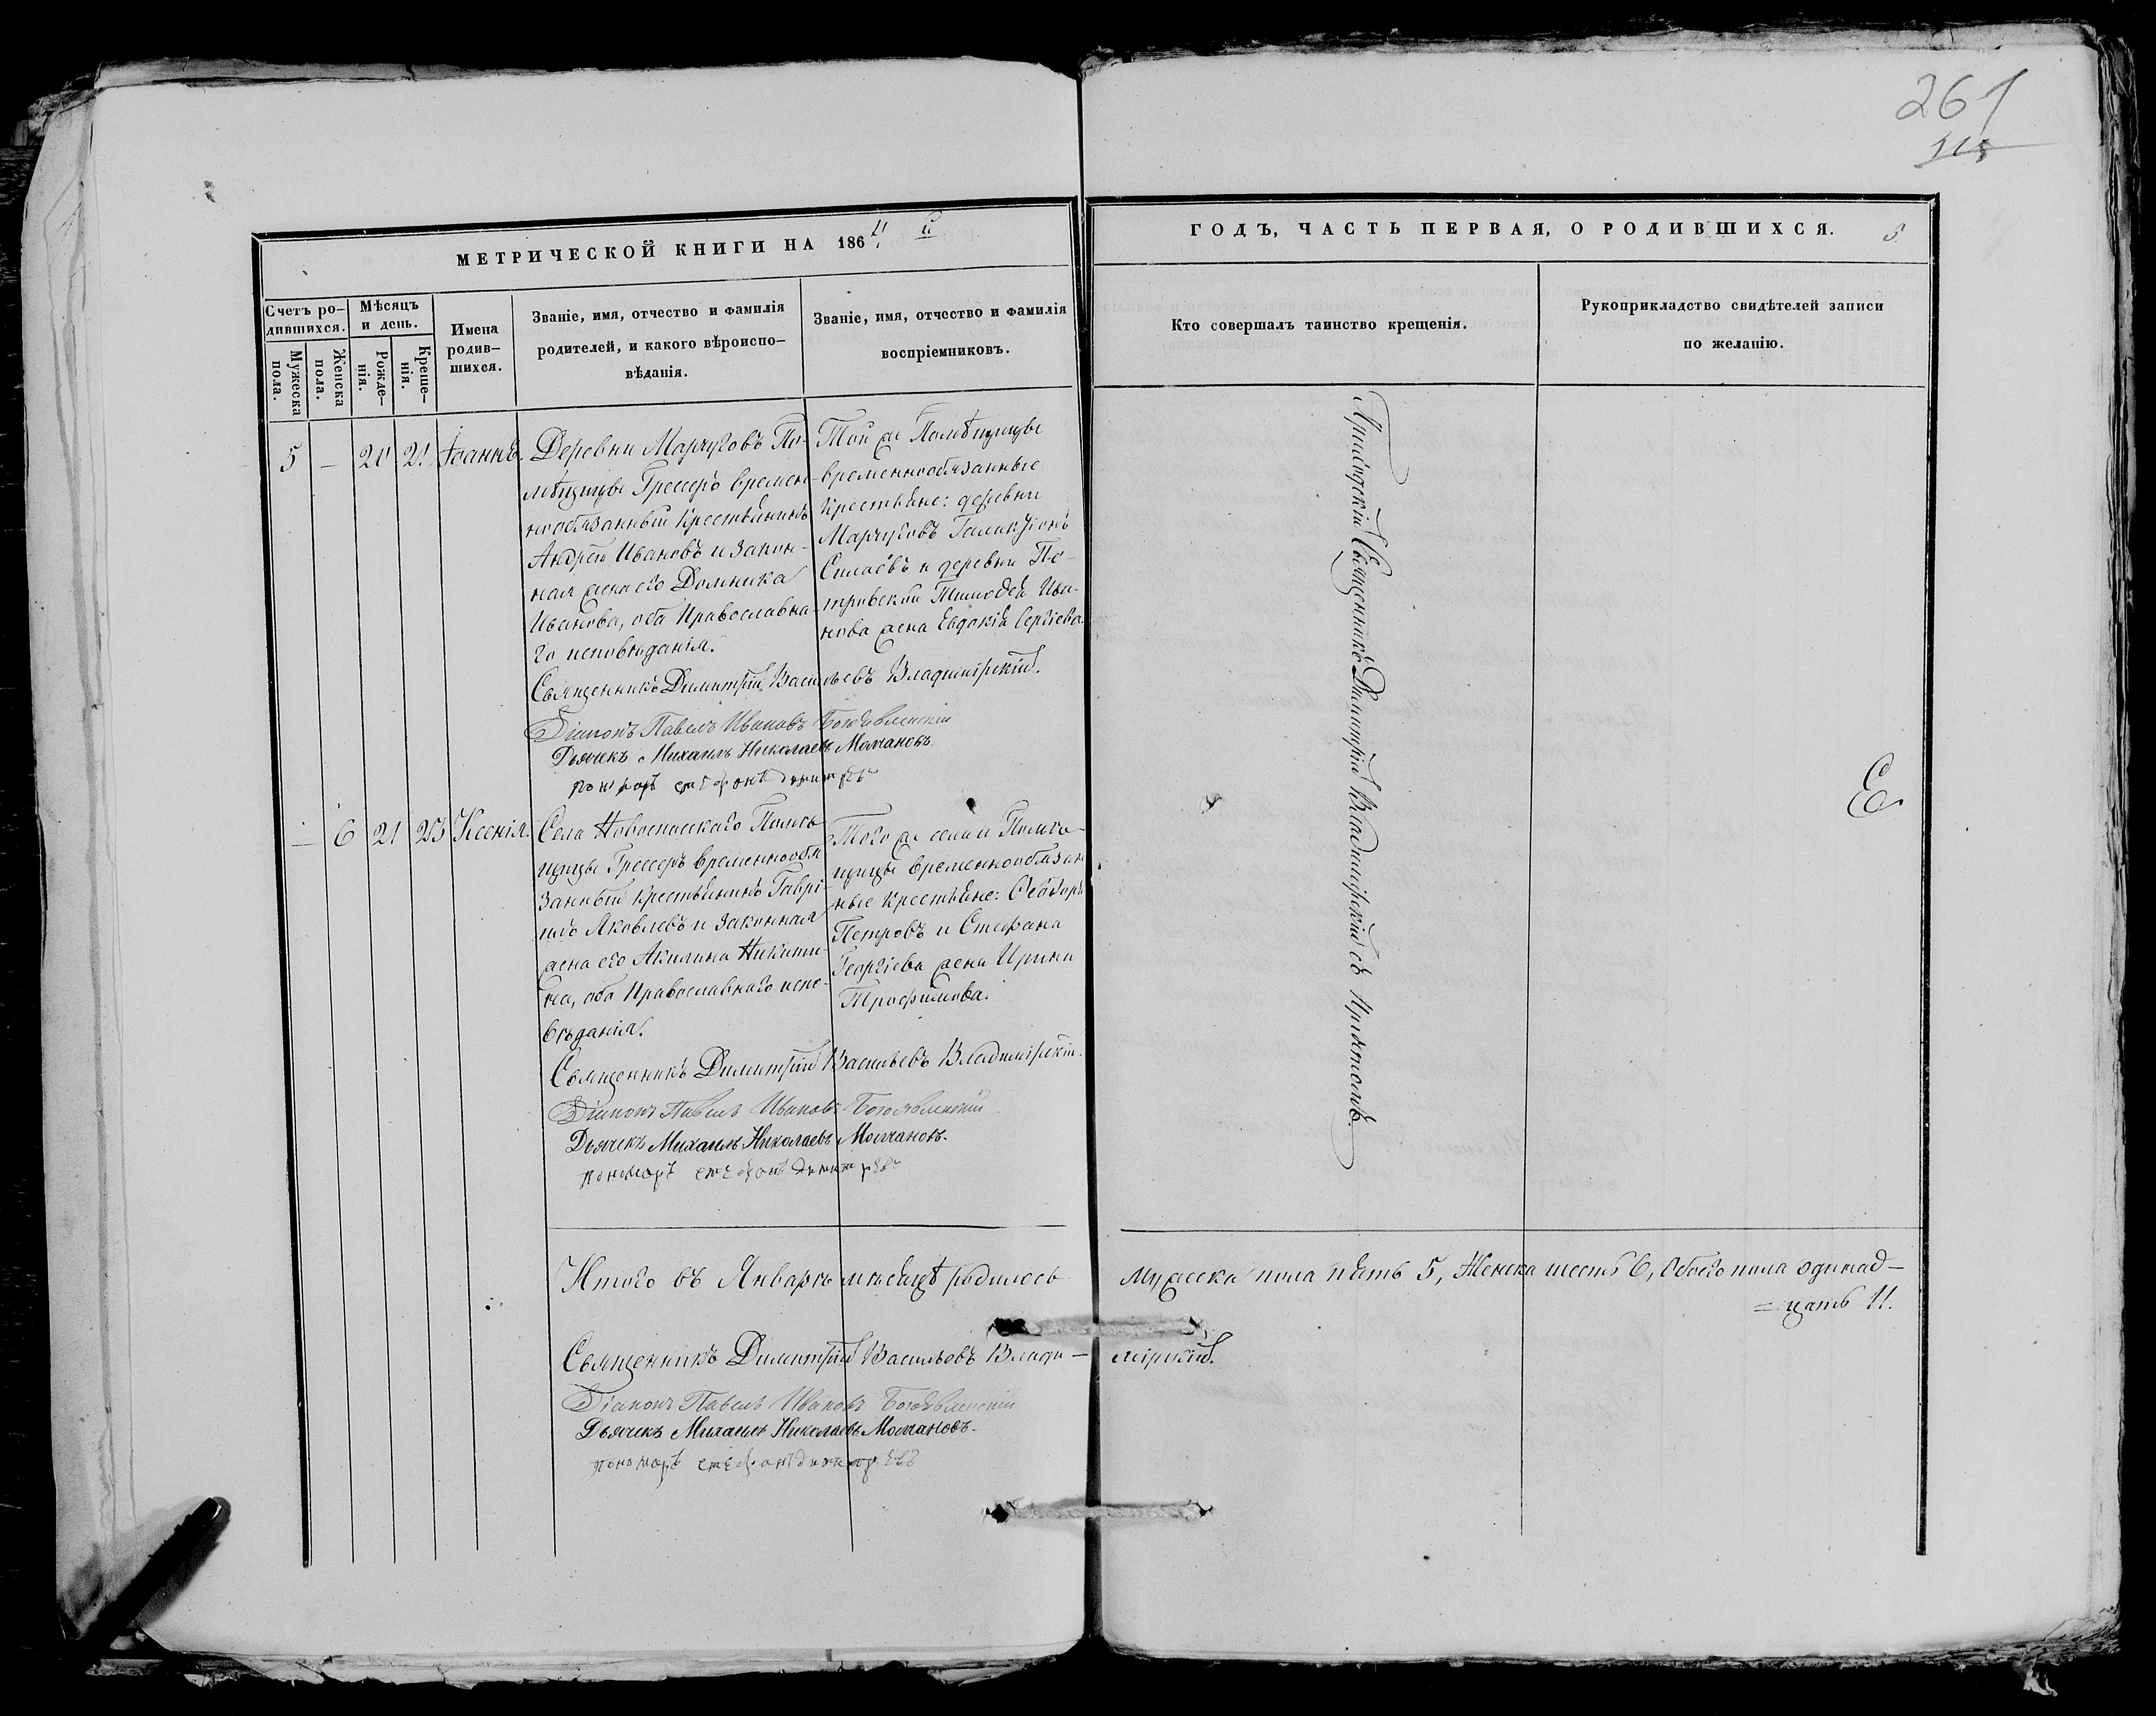 261
МЕТРИЧЕСКОЙ КНИГИ НА 1864й
ГОДЪ, ЧАСТЬ ПЕРВАЯ, О РОДИВШИХСЯ.
Счетъ ро-
дившихся.
Мужеска
пола.
Женска
пола.
Мѣсяцъ
и день.
Рожде-
нія.
Креще-
нія.
Имена
родив-
шихся.
Званіе, имя, отчество и фамилія
родителей, и какого вѣроиспо-
вѣданія.
Званіе, имя, отчество и фамилія
воспріемниковъ.
Кто совершалъ таинство крещенія.
Рукоприкладство свидѣтелей записи
по желанію.
5 — 21 21 Іоаннъ.
Деревни Марчуговъ По-
мѣщицы Грессеръ времен-
нообязанный крестьянинъ
Андрей Ивановъ и закон-
ная жена его Домника
Иванова, оба Православна-
го исповѣданія.
Той же Помѣщицы
временнообязанные
крестьяне: деревни
Марчуговъ
Силаевъ и деревни Пе-
тровской Тимофей Ива-
нова жена Евдокія Сергіева.
Священникъ Димитрій Васильевъ Владимірскій.
Діаконъ Павелъ Ивановъ Богоявленскій
Дьячекъ Михаилъ Николаевъ Молчановъ.
пономарь стефонъ димитревъ
— 6 21 23 Ксенія.
Села Новоспасскаго Помѣ-
щицы Грессеръ временнообя
занный крестьянинъ Гаврі-
илъ Яковлевъ и законная
жена его Акилина Никити-
на, оба Православнаго испо-
вѣданія.
Того же села и Помѣ-
щицы временнообязан
ные крестьяне: Ѳеодоръ
Петровъ и Стефана
Георгіева жена Ирина
Трофимова.
Священникъ Димитрій Васильевъ Владимірскій.
Діаконъ Павелъ Ивановъ Богоявленскій
Дьячекъ Михаилъ Николаевъ Молчановъ.
пономарь стефонъ димитревъ
Приходскій Священникъ Димитрій Владимірскій съ причтомъ.
Итого въ Январѣ мѣсяцѣ родилось мужеска пола пять 5, Женска шесть 6, Обоего пола одинад-
=цать 11.
Священникъ Димитрій Васильевъ Влади-мірскій.
Діаконъ Павелъ Ивановъ Богоявленскій
Дьячекъ Михаилъ Николаевъ Молчановъ.
пономарь стефонъ димитревъ